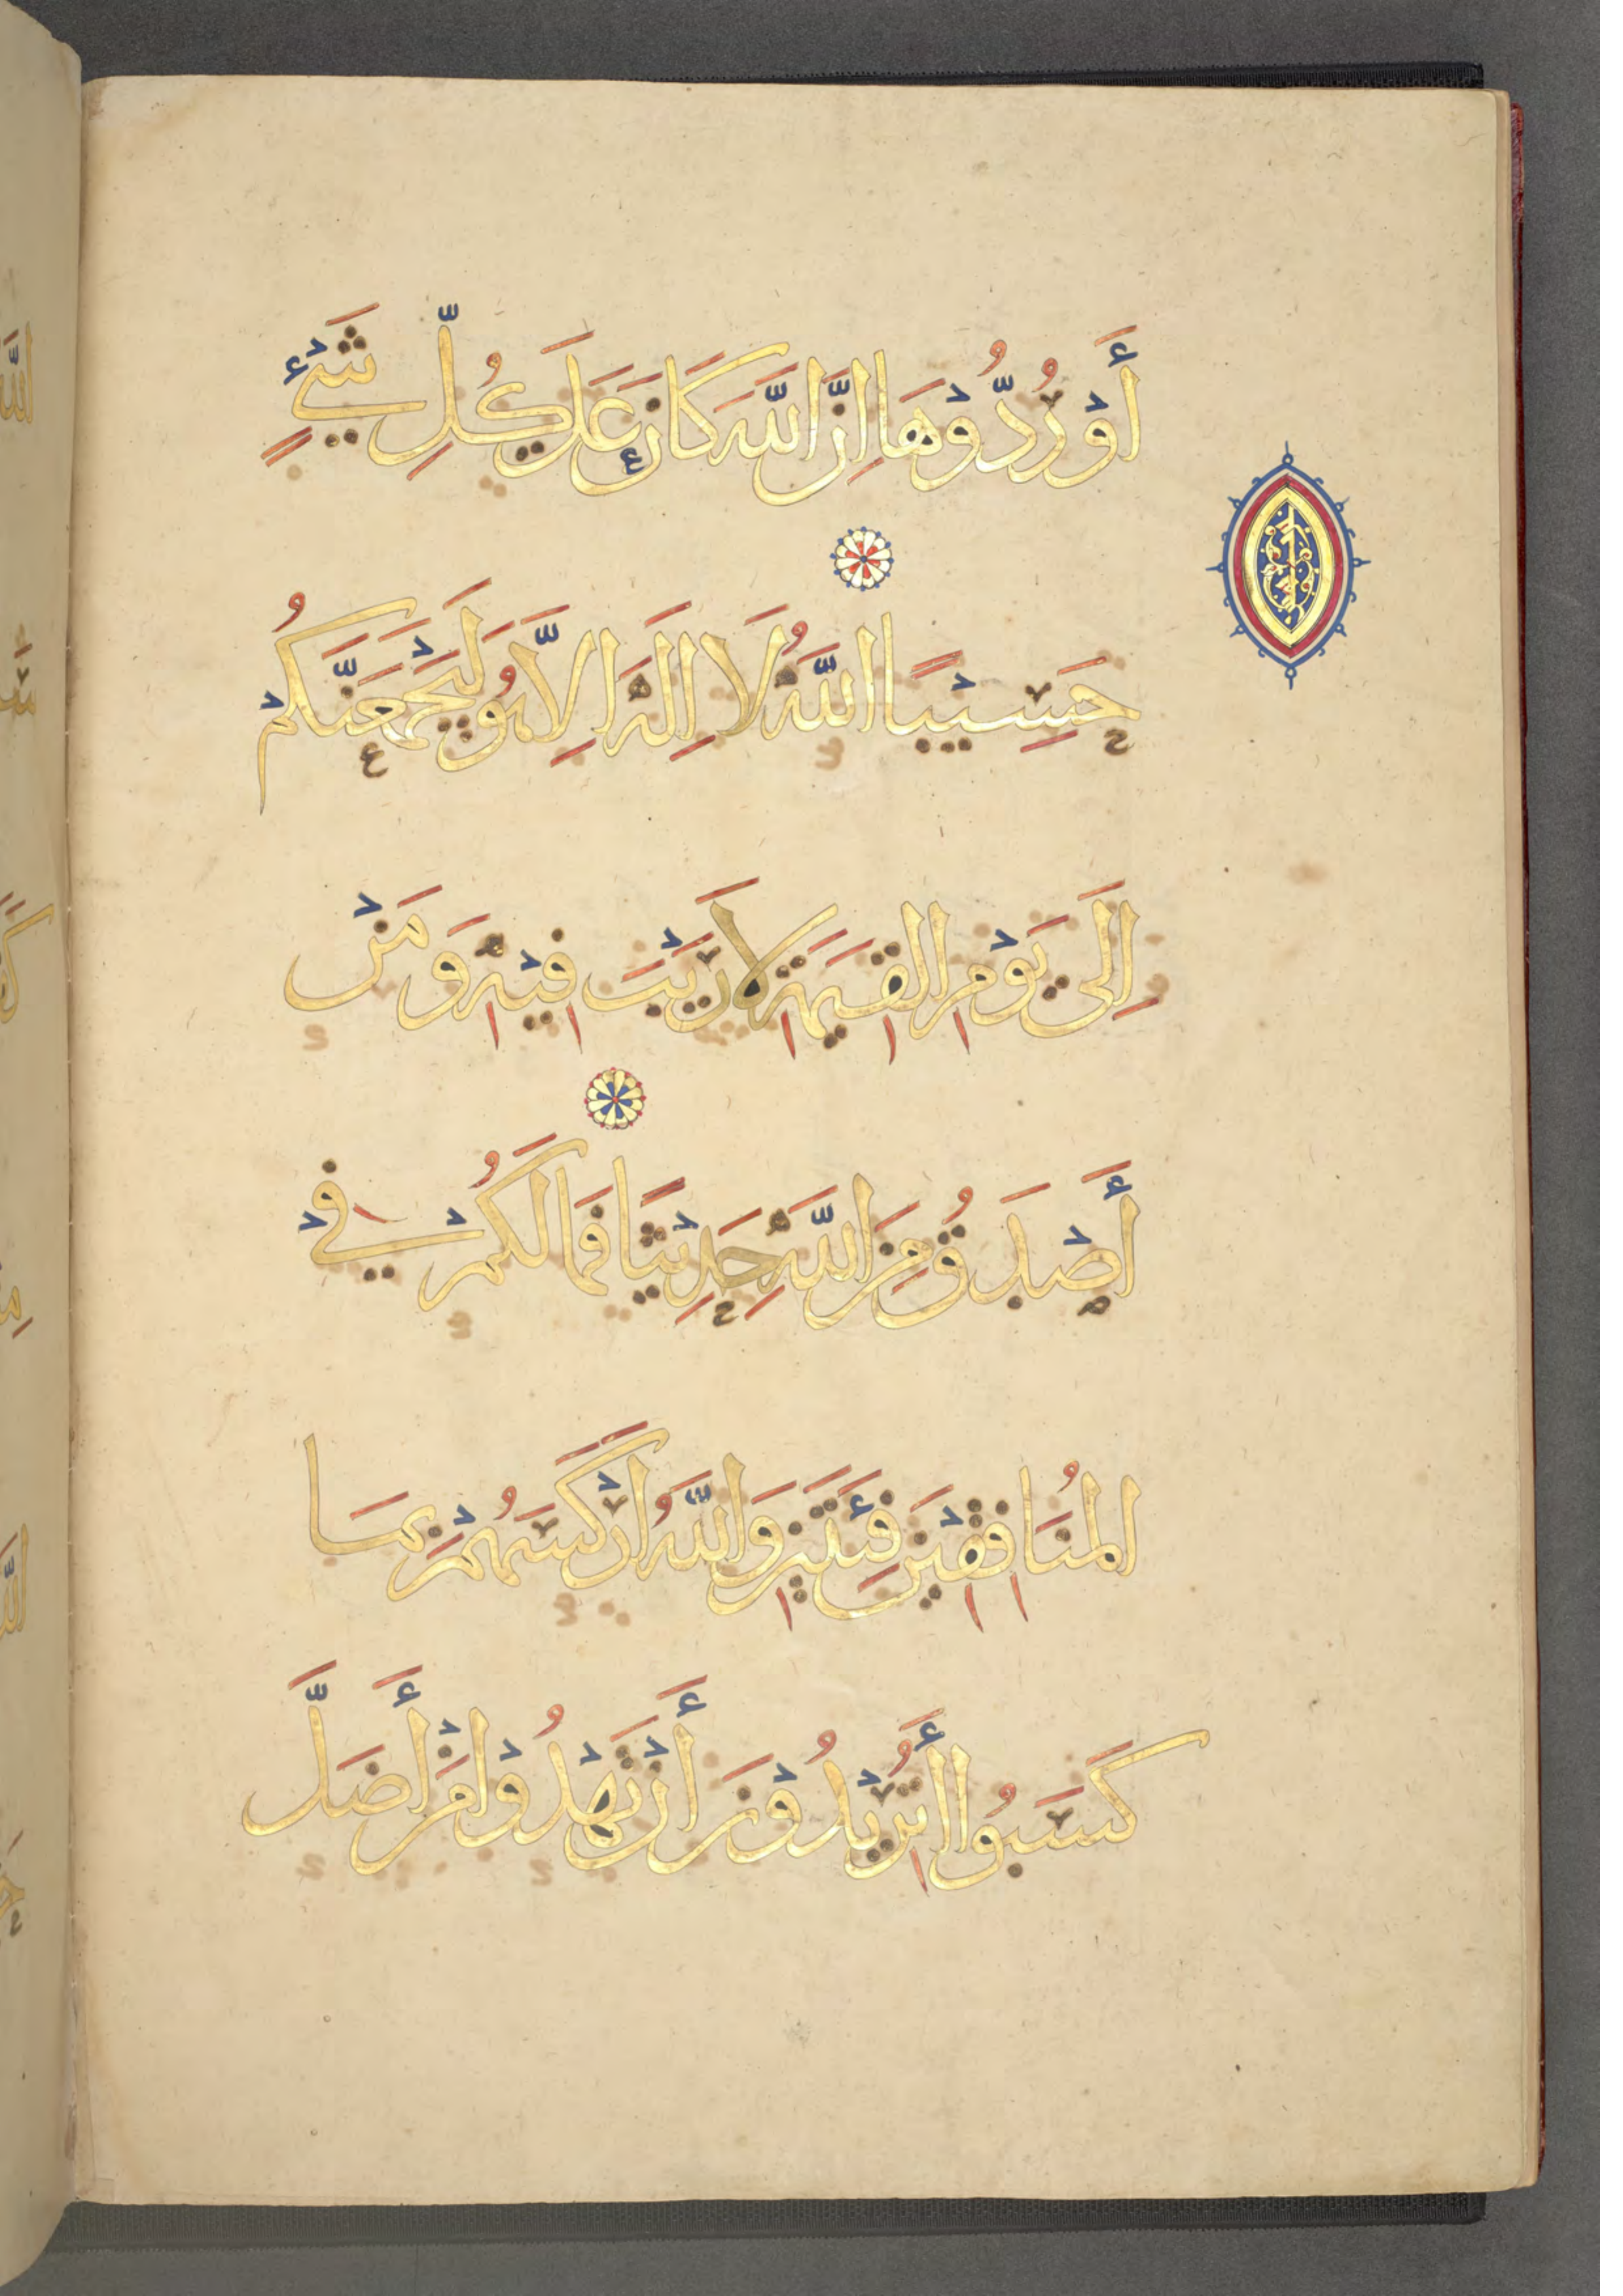 أَوْ رُدُّوْهَا اِنَّ اللَّهَ كَانَ عَلَى كُلِّ شَيْءٍ
حَسِيْبًا اللَّهُ لَا اِلَهَ اِلَّا هُوَ لَيَجْمَعَنَّكُمْ
اِلَى يَوْمِ القِيَمَةِ لَا رَيْبَ فِيْهِ وَمَنْ
أَصْدَقُ مِنَ اللَّهِ حَدِيْثًا فَمَا لَكُمْ فِيْ
المُنَافِقِيْنَ فِئَتَيْنِ وَاللَّهُ اَرْكَسَهُمْ بِمَا
كَسَبُوا أَتُرِيْدُوْنَ أَنْ تَهْدُوْا مَنْ أَضَلَّ